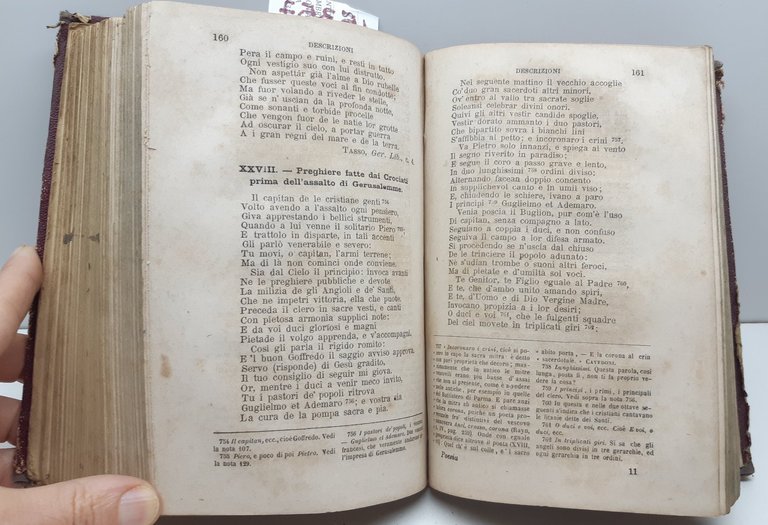 160
DESCRIZIONI
Pera il campo e ruini, e resti in tutto
Ogni vestigio suo con lui distrutto.
Non aspettâr già l'alme a Dio rubelle
Che fusser queste voci al fin condotte;
Ma fuor volando a riveder le stelle,
Già se n' uscian da la profonda notte,
Come sonanti e torbide procelle
Che vengon fuor de le natie lor grotte
Ad oscurar il cielo, a portar guerra
A i gran regni del mare e de la terra.
TASSO, Ger. Lib., c. 4.
XXVIII. — Preghiere fatte dai Crociati
prima dell'assalto di Gerusalemme.
Il capitan de le cristiane genti 754
Volto avendo a l'assalto ogni pensiero,
Giva apprestando i bellici strumenti,
Quando a lui venne il solitario Piero 755,
E trattolo in disparte, in tali accenti
Gli parlò venerabile e severo:
Tu movi, o capitan, l'armi terrene;
Ma di là non cominci onde conviene.
Sia dal Cielo il principio: invoca avanti
Ne le preghiere pubbliche e devote
La milizia de gli Angioli e de' Santi,
Che ne impetri vittoria, ella che puote.
Preceda il clero in sacre vesti, e canti
Con pietosa armonia supplici note:
E da voi duci gloriosi e magni
Pietade il volgo apprenda, e v'accompagni.
Così gli parla il rigido romito:
E 'l buon Goffredo il saggio avviso approva.
Servo (risponde) di Gesù gradito,
Il tuo consiglio di seguir mi giova.
Or, mentre i duci a venir meco invito,
Tu i pastori de' popoli ritrova
Guglielmo et Ademaro 756; e vostra sia
La cura de la pompa sacra e pia.
754 Il capitan, ecc., cioè Goffredo. Vedi
la nota 107.
755 Piero, e poco di poi Pietro. Vedi
la nota 129.
756 I pastori de' popoli, i
— Guglielmo et Ademaro,
francesi, che veramente
l'impresa di Gerusalemme.
DESCRIZIONI
161
Nel seguente mattino il vecchio accoglie
Co' duo gran sacerdoti altri minori,
Ov' entro al vallo tra sacrate soglie
Soleansi celebrar divini onori.
Quivi gli altri vestir candide spoglie,
Vestir dorato ammanto i duo pastori,
Che bipartito sovra i bianchi lini
S'affibbia al petto; e incoronaro i crini 757.
Va Pietro solo innanzi, e spiega al vento
Il segno riverito in paradiso;
E segue il coro a passo grave e lento,
In duo lunghissimi 758 ordini diviso:
Alternando facean doppio concento
In supplichevol canto e in umil viso;
E, chiudendo le schiere, ivano a paro
I principi 759 Guglielmo et Ademaro.
Venia poscia il Buglion, pur com'è l'uso
Di capitan, senza compagno a lato,
Seguiano a coppia i duci, e non confuso
Seguiva il campo a lor difesa armato.
Sì procedendo se n'uscia dal chiuso
De le trinciere il popolo adunato:
Nè s'udian trombe o suoni altri feroci,
Ma di pietate e d'umiltà sol voci.
Te Genitor, te Figlio eguale al Padre 760,
E te, che d'ambo unito amando spiri,
E te, d'Uomo e di Dio Vergine Madre,
Invocano propizia a i lor desiri;
O duci e voi 761, che le fulgenti squadre
Del ciel movete in triplicati giri 762;
757 Incoronaro i crini, cioè si po-
sero in capo la sacra mitra: è desso
un parlar
che tra le antico le mitre
in Parma. E pure non si
sacre corone, come un poeta
cantò
corona (Rayn.
propria dice altrove il poeta (XVIII,
Qui si e sul colle, e
abito porta, — E la corona al crin
sacerdotale. CAVEDONI.
758 Lunghissimi. Questa parola, così
lunga, posta lì, non ti la proprio ve-
dere la cosa?
759 I principi, i primi, i principali
del clero. Vedi sopra la nota 756.
760 In questa e nelle due ottave se-
guenti s'indica ciò che i cristiani cantavano
761 O duci e voi, ecc. Cioè E voi, o
duci, ecc.
762 In triplicati giri. Si sa che gli
angeli sono divisi in tre gerarchie, ed
ogni gerarchia in tre ordini.
Poesia
11